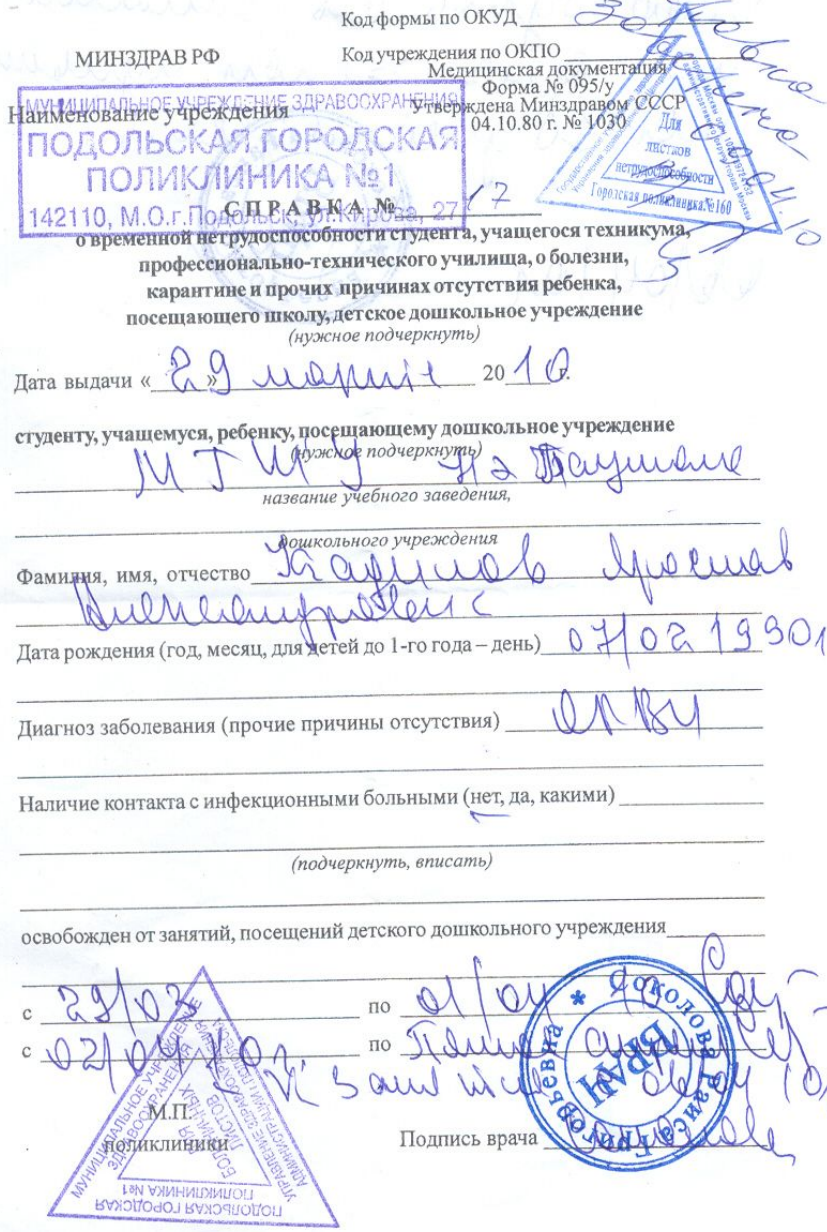 Код формы по ОКУД
МИНЗДРАВ РФ
Код учреждения по ОКПО
Медицинская документация
Форма № 095/у
Утверждена Минздравом СССР
04.10.80 г. № 1030
МУНИЦИПАЛЬНОЕ УЧРЕЖДЕНИЕ ЗДРАВООХРАНЕНИЯ
Наименование учреждения
ПОДОЛЬСКАЯ ГОРОДСКАЯ
ПОЛИКЛИНИКА №1
142110, М.О.г.Подольск, ул.Кирова, 27
Для
листков
нетрудоспособности
Городская поликлиника №160
СПРАВКА № 17
о временной нетрудоспособности студента, учащегося техникума,
профессионально-технического училища, о болезни,
карантине и прочих причинах отсутствия ребенка,
посещающего школу, детское дошкольное учреждение
(нужное подчеркнуть)
Дата выдачи « 29 » марта 2010 г.
студенту, учащемуся, ребенку, посещающему дошкольное учреждение
(нужное подчеркнуть)
на
название учебного заведения,
дошкольного учреждения
Фамилия, имя, отчество Ярослав
Александрович
Дата рождения (год, месяц, для детей до 1-го года – день) 07/02 1990
Диагноз заболевания (прочие причины отсутствия) ОРВИ
Наличие контакта с инфекционными больными (нет, да, какими)
(подчеркнуть, вписать)
освобожден от занятий, посещений детского дошкольного учреждения
с 29/03 по 01/04
с 02/04 по
М.П.
поликлиники
Подпись врача
Соколова Раиса Григорьевна
ВРАЧ
МУНИЦИПАЛЬНОЕ УЧРЕЖДЕНИЕ
ЗДРАВООХРАНЕНИЯ
ПОДОЛЬСКАЯ ГОРОДСКАЯ
ПОЛИКЛИНИКА №1